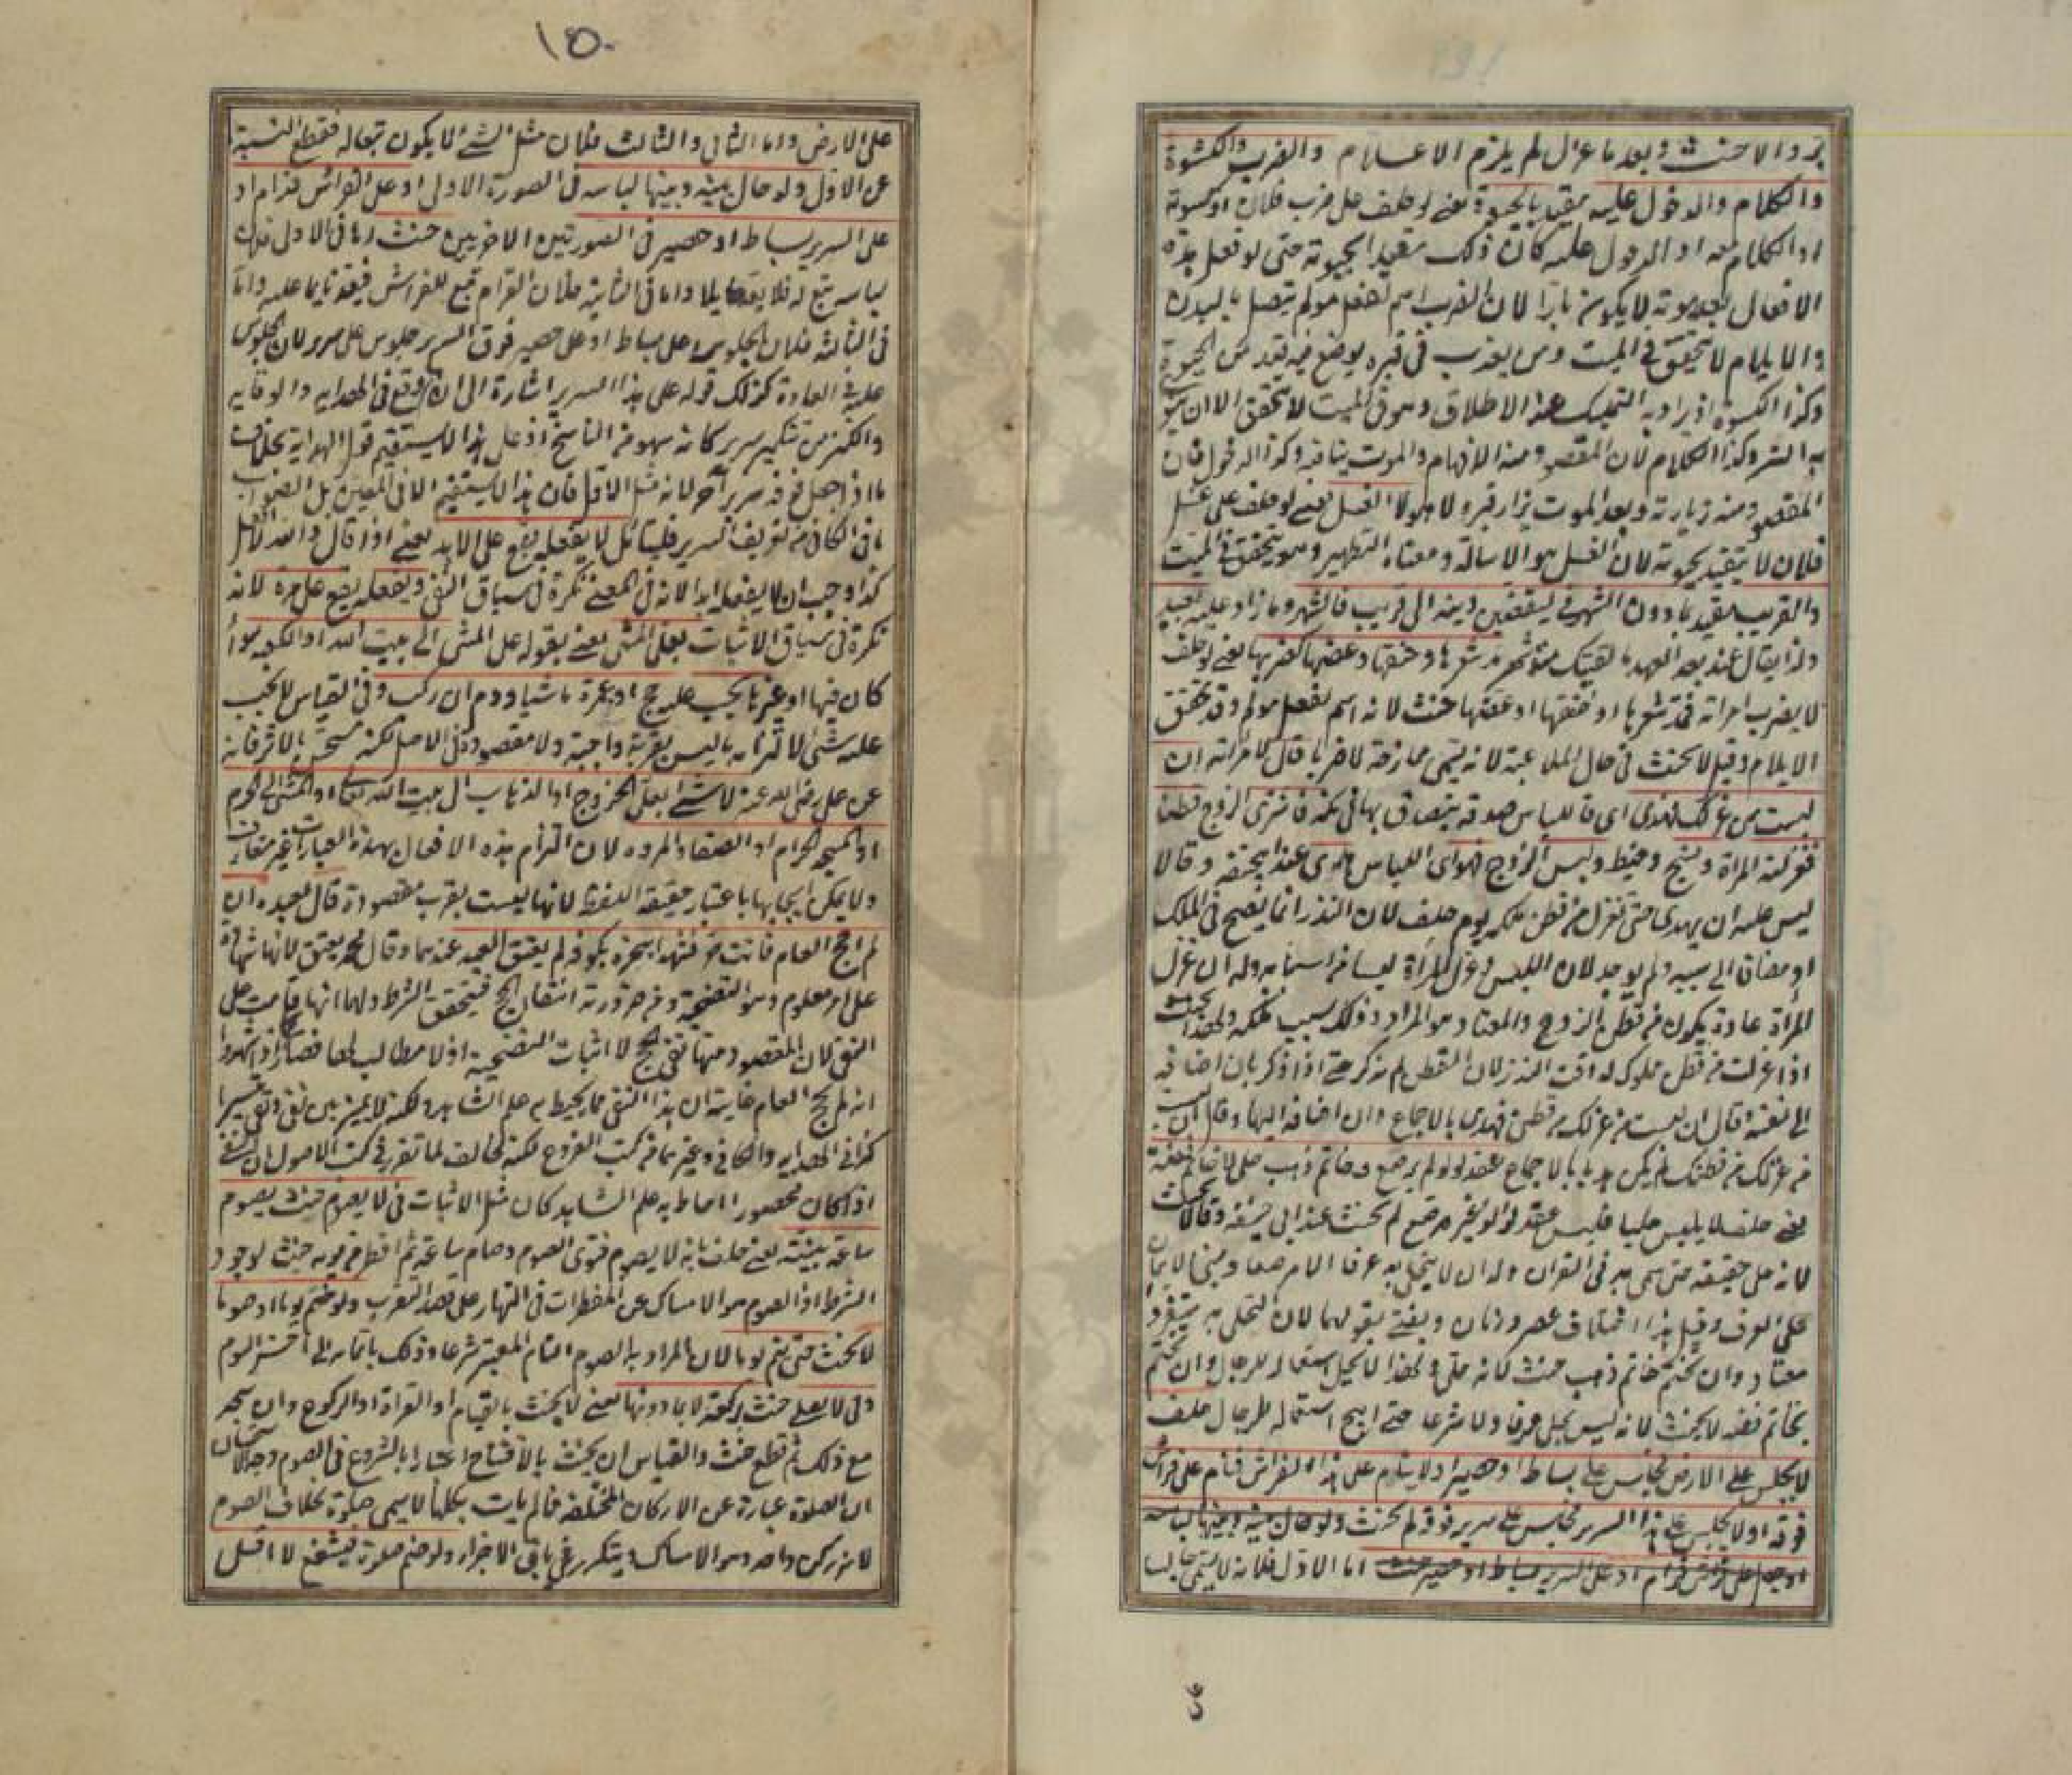 بر والا حنث وبعد ما عزل لم يلزم الاعلام والضرب والكسوة
والكلام والدخول عليه مقيد بالحيوة يعني لو حلف على ضرب فلان او كسوته
او الكلام معه او الدخول عليه كان ذلك مقيدا بحيوته حتى لو فعل هذه
الافعال بعد موته لا يكون بارا لان الضرب اسم لفعل مولم يتصل بالبدن
والايلام لا يتحقق في الميت ومن يعذب في قبره يوضع فيه بقدر من الحيوة
وكذا الكسوة اذ يراد به التمليك عند الاطلاق وهو في الميت لا يتحقق الا ان ينوي
به الستر وكذا الكلام لان المقصود منه الافهام والموت ينافيه وكذا الدخول فان
المقصود منه زيارته وبعد الموت يزار قبره لا هو لا الغسل يعني لو حلف على غسل
فلان لا يتقيد بحيوته لان الغسل هو الاسالة ومعناه التطهير وهو يتحقق في الميت
والقريب يقيد بما دون الشهر في ليقضين دينه الى قريب فالشهر وما زاد عليه بعيد
ولذا يقال عند بعد العهد ما لقيتك منذ شهر مد شعرها وخنقها وعضها كضربها يعني لو حلف
لا يضرب امراته فمد شعرها او خنقها او عضها حنث لانه اسم لفعل مولم وقد تحقق
الايلام وقيل لا يحنث في حال الملاعبة لانه يسمى ممازحة لا ضربا قال لامراته ان
لبست من غزلك فهدى اي فاللباس صدقة يتصدق بها في مكة فاشترى الزوج قطنا
فغزلته المراة ونسج وخيط ولبس الزوج فهو اي اللباس هدى عند ابي حنيفة وقالا
ليس عليه ان يهدى حتى تغزل من قطن ملكه يوم حلف لان النذر انما يصح في الملك
او مضافا الى سببه ولم يوجد لان اللبس وغزل المراة ليسا من اسبابه وله ان غزل
المراة عادة يكون من قطن الزوج والمعتاد هو المراد وذلك سبب لملكه ولهذا يحنث
اذا غزلت من قطن مملوك له وقت النذر لان القطن لم يذكر حتى اذا ذكر بان اضافه
الى نفسه وقال ان لبست من غزلك من قطني فهدى بالاجماع وان اضافه اليها وقال ان لبست
من غزلك من قطنك لم يكن هديا بالاجماع عقد لولو لم يرصع وخاتم ذهب حلى لا خاتم فضة
يعني حلف لا يلبس حليا فلبس عقد لولو غير مرصع لم يحنث عند ابي حنيفة وقالا يحنث
لانه حلى حقيقة حتى سمى به في القران وله ان لا يتحلى به عرفا الا مرصعا ومبنى الايمان
على العرف وقيل هذا اختلاف عصر وزمان ويفتى بقولهما لان التحلى به منفردا
معتاد وان تختم خاتم ذهب حنث لانه حلى ولهذا لا يحل استعماله للرجال وان تختم
بخاتم فضة لا يحنث لانه ليس بحلى عرفا ولا شرعا حتى ابيح استعماله للرجال حلف
لا يجلس على الارض فجلس على بساط او حصير او لا ينام على هذا الفراش فنام على فراش
فوقه او لا يجلس على هذا السرير فجلس على سرير فوقه لم يحنث ولو حال بينه وبينها لباسه
او جعل على الفراش قرام او على السرير بساط او حصير حنث اما الاول فلانه لا يسمى جالسا
ع
١٥٠
على الارض واما الثاني والثالث فلان مثل الشئ لا يكون تبعا له فقطع النسبة
عن الاول ولو حال بينه وبينها لباسه في الصورة الاولى او على الفراش قرام او
على السرير بساط او حصير في الصورتين الاخريين حنث اما في الاول فلان
لباسه تبع له فلا يعد حايلا واما في الثانية فلان القرام تبع للفراش فيعد نايما عليه واما
في الثالثة فلان الجلوس على بساط او على حصير فوق السرير جلوس على سرير لان الجلوس
عليه في العادة كذلك قوله على هذا السرير اشارة الى ان ما وقع في الهداية والوقاية
والكنز من تنكير سرير كانه سهو من الناسخ اذ على هذا لا يستقيم قول الهداية بخلاف
ما اذا جعل فوقه سرير آخر لانه مثل الاول فان هذا لا يستقيم الا في المعين بل الصواب
ما في الكافي من تعريف السرير فليتامل لا يفعله يقع على الابد يعني اذا قال والله لا افعل
كذا وجب ان لا يفعله ابدا لانه في المعنى نكرة في سياق النفي ويفعله يقع على مرة لانه
نكرة في سياق الاثبات بعلى المشى يعني بقوله على المشى الى بيت الله او الكعبة سواء
كان فيها او غيرها يجب عليه حج او عمرة ماشيا ودم ان ركب وفي القياس لا يجب
عليه شئ لالتزامه ما ليس بقربة واجبة ولا مقصودة في الاصل لكنه مستحب بالاثر فانه
عن على رضى الله عنه لا شئ بعلى الخروج او الذهاب الى بيت الله تعالى او المشى الى الحرم
او المسجد الحرام او الصفا والمروة لان التزام هذه الافعال بهذه العبارات غير متعارف
ولا يمكن ايجابها باعتبار حقيقة اللفظ لانها ليست بقرب مقصودة قال عبده ان
لم احج العام فانت حر فشهدا بنحره بكوفة لم يعتق العبد عندهما وقال محمد يعتق لانها شهادة
على امر معلوم وهو التضحية ومن ضرورته انتفاء الحج فيتحقق الشرط ولهما انها قامت على
النفي لان المقصود منها نفي الحج لا اثبات التضحية اذ لا مطالب لها فصار كما اذا شهدوا
انه لم يحج العام غايته ان هذا النفي مما يحيط به علم الشاهد ولكنه لا يميز بين نفي ونفي تيسيرا
كذا في الهداية والكافي وغيرهما من كتب الفروع لكنه مخالف لما تقرر في كتب الاصول ان النفي
اذا كان محصورا احاط به علم الشاهد كان مثل الاثبات في لا يصوم حنث بصوم
ساعة بنيته يعني حلف بانه لا يصوم فنوى الصوم وصام ساعة ثم افطر من يومه حنث لوجود
الشرط اذ الصوم هو الامساك عن المفطرات في النهار على قصد التقرب ولو ضم يوما او صوما
لا يحنث حتى يتم يوما لان المراد به الصوم التام المعتبر شرعا وذلك باتمامه الى آخر اليوم
وفي لا يصلى حنث بركعة لا بما دونها يعني لا يحنث بالقيام او القراة او الركوع وان سجد
مع ذلك ثم قطع حنث والقياس ان يحنث بالافتتاح اعتبارا بالشروع في الصوم وجه الاستحسان
ان الصلوة عبارة عن الاركان المختلفة فما لم يات بكلها لا يسمى صلوة بخلاف الصوم
لانه ركن واحد وهو الامساك ويتكرر في باقي الاجزاء ولو ضم صلوة فبشفع لا اقل